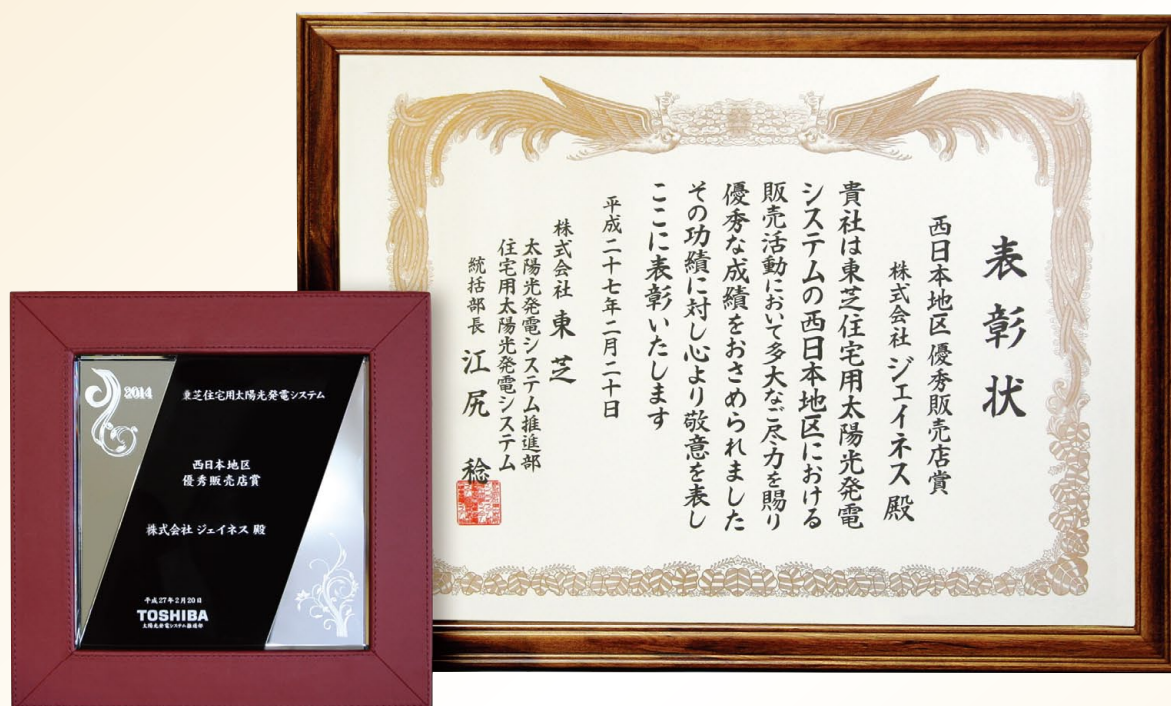 表彰状
西日本地区 優秀販売店賞
株式会社 ジェイネス 殿
貴社は東芝住宅用太陽光発電
システムの西日本地区における
販売活動において多大なご尽力を賜り
優秀な成績をおさめられました
その功績に対し心より敬意を表し
ここに表彰いたします
平成二十七年二月二十日
株式会社 東芝
太陽光発電システム推進部
住宅用太陽光発電システム
統括部長 江尻 稔
2014
東芝住宅用太陽光発電システム
西日本地区
優秀販売店賞
株式会社 ジェイネス 殿
平成27年2月20日
TOSHIBA
太陽光発電システム推進部